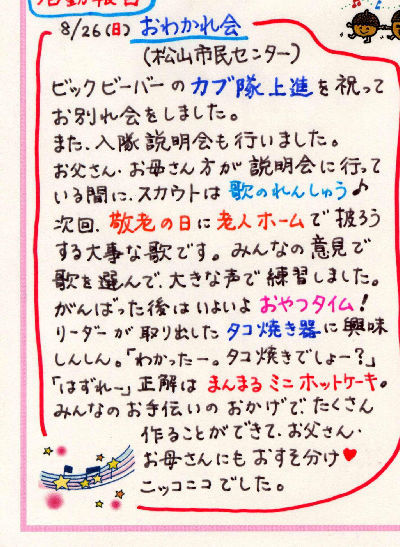 活動報告
8/26(日) おわかれ会
(松山市民センター)
ビックビーバーの カブ隊上進を祝って
お別れ会をしました。
また、入隊説明会も行いました。
お父さん・お母さん方が説明会に行って
いる間に、スカウトは 歌のれんしゅう♪
次回、敬老の日に老人ホームで披ろう
する大事な歌です。みんなの意見で
歌を選んで、大きな声で練習しました。
がんばった後はいよいよ おやつタイム!
リーダーが取り出した タコ焼き器に興味
しんしん。「わかったー。タコ焼きでしょー?」
「はずれー」正解は まんまるミニホットケーキ。
みんなのお手伝いの おかげで、たくさん
作ることができて、お父さん・
お母さんにも おすそ分け♥
ニッコニコでした。